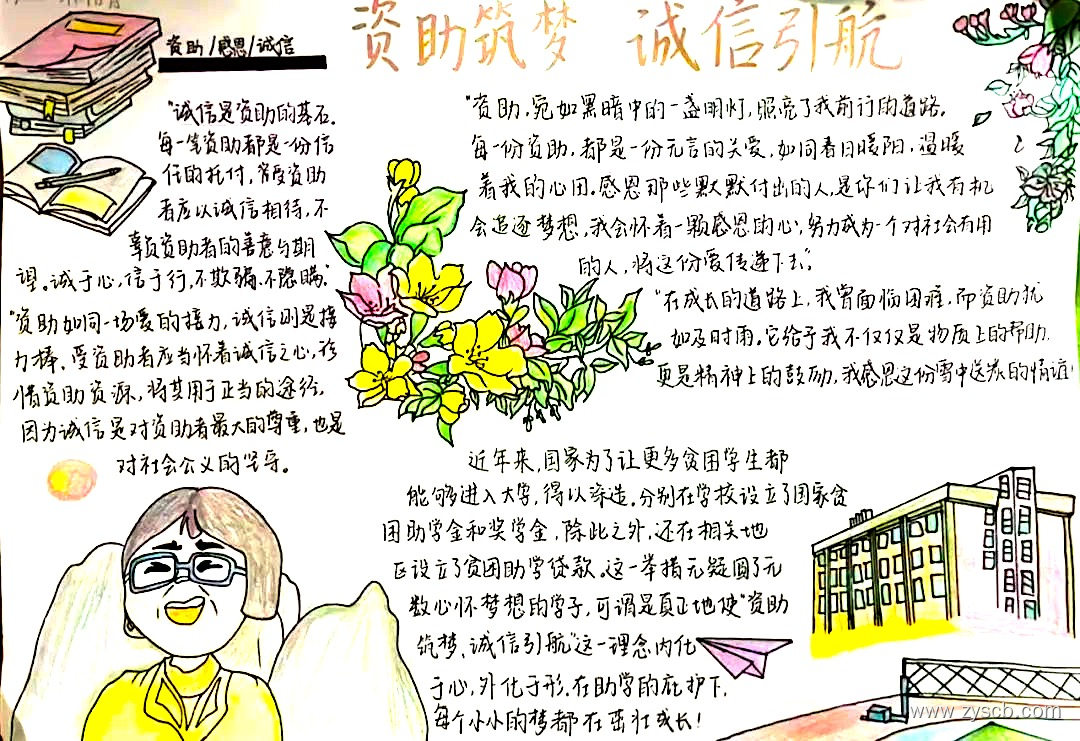 资助筑梦 诚信引航
资助/感恩/诚信
"诚信是资助的基石。
每一笔资助都是一份信
任的托付,接受资助
者应以诚信相待,不
辜负资助者的善意与期
望。诚于心,信于行,不欺骗、不隐瞒."
"资助如同一场爱的接力,诚信则是接
力棒、受资助者应当怀着诚信之心,珍
惜资助资源,将其用于正当的途径,
因为诚信是对资助者最大的尊重,也是
对社会公义的坚守。
"资助,宛如黑暗中的一盏明灯,照亮了我前行的道路.
每一份资助,都是一份无言的关爱,如同春日暖阳,温暖
着我的心田。感恩那些默默付出的人,是你们让我有机
会追逐梦想,我会怀着一颗感恩的心,努力成为一个对社会有用
的人,将这份爱传递下去,"
"在成长的道路上,我曾面临困难,而资助犹
如及时雨。它给予我不仅仅是物质上的帮助,
更是精神上的鼓励,我感恩这份雪中送炭的情谊!
近年来,国家为了让更多贫困学生都
能够进入大学,得以深造,分别在学校设立了国家贫
困助学金和奖学金,除此之外,还在相关地
区设立了贫困助学贷款。这一举措无疑圆了无
数心怀梦想的学子,可谓是真正地使"资助
筑梦、诚信引航"这一理念内化
于心,外化于形.在助学的庇护下,
每个小小的梦都在茁壮成长!
www.zyscb.com